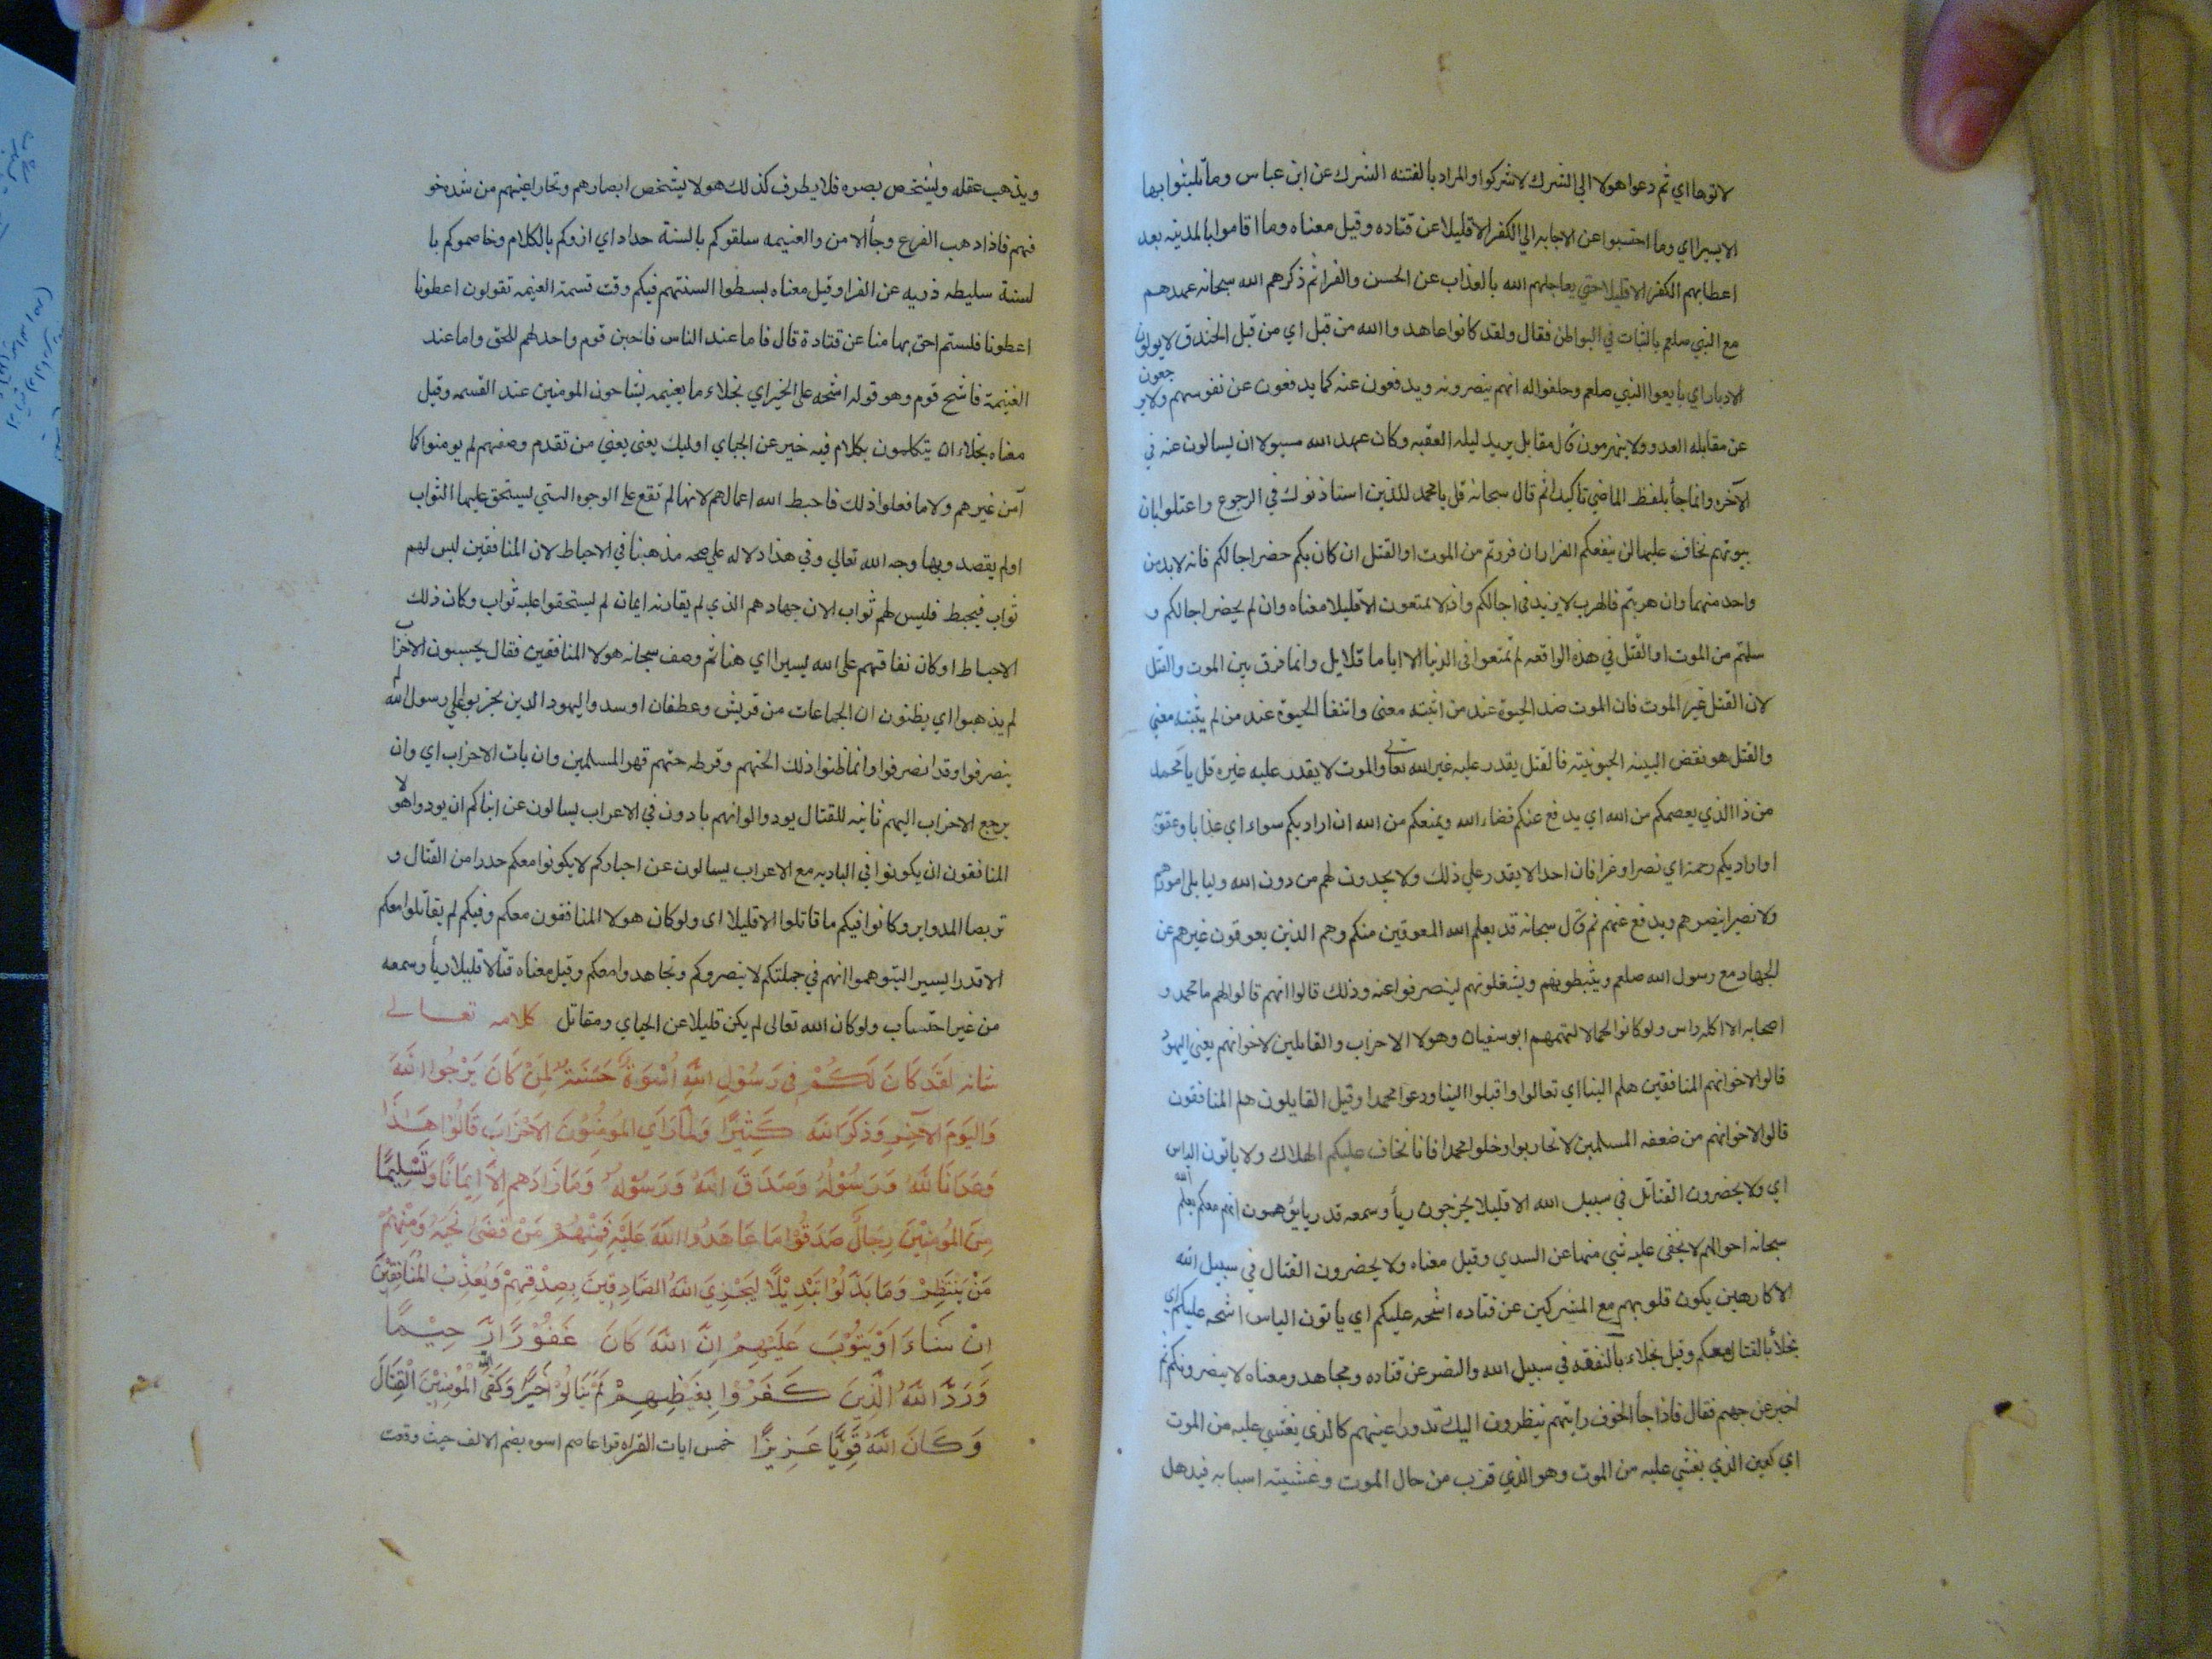 لاتوها اي ثم دعوا هولا الي الشرك لاشركوا والمراد بالفتنه الشرك عن ابن عباس وما تلبثوا بها
الا يسيرا اي وما احتسبوا عن الاجابه الي الكفر الا قليلا عن قتاده وقيل معناه وما اقاموا بالمدينه بعد
اعطابهم الكفر الا قليلا حتي يعاجلهم الله بالعذاب عن الحسن والفرا ثم ذكرهم الله سبحانه عهدهم
مع النبي صلعم بالثبات في البواطن فقال ولقد كانوا عاهدوا الله من قبل اي من قبل الخندق لا يولون
الادبار اي بايعوا النبي صلعم وحلفوا له انهم ينصرونه ويدفعون عنه كما يدفعون عن نفوسهم ولا يرجعون
عن مقابله العدو ولا ينهرمون قال مقابل يريد ليله العقبه وكان عهد الله مسيولا ان يسالون عنه في
الآخره وانما جأ بلفظ الماضي تاكيدا ثم قال سبحانه قل يا محمد للذين استاذنوك في الرجوع واعتلوا بان
بيوتهم نخاف عليها لن ينفعكم الفرار ان فررتم من الموت او القتل ان كان بكم حضر اجالكم فانه لا بد من
واحد منهما وان هربتم فالهرب لا يزيد في اجالكم واذا لا تمتعون الا قليلا معناه وان لم يحضر اجالكم و
سلمتم من الموت او القتل في هذه الواقعه لم تمتعوا في الدنيا الا اياما قلايل وانما فرق بين الموت والقتل
لان القتل غير الموت فان الموت ضد الحيوة عند من اثبته معنى وانتفأ الحيوة عند من لم يثبته معني
والقتل هو نقض البينه الحيوبنيته فالقتل يقدر عليه غير الله تعالى والموت لا يقدر عليه غيره قل يا محمد
من ذا الذي يعصمكم من الله اي يدفع عنكم قضاء الله ويمنعكم من الله ان اراد بكم سواء اي عذابا وعقوبة
او اراد بكم رحمة اي نصرا وعزا فان احدا لا يقدر علي ذلك ولا يجدون لهم من دون الله وليا يلي امورهم
ولا نصيرا ينصرهم ويدفع عنهم ثم قال سبحانه قد يعلم الله المعوقين منكم وهم الذين يعوقون غيرهم عن
الجهاد مع رسول الله صلعم ويثبطونهم ويشغلونهم لينصرفوا عنه وذلك قالوا انهم قالوا لهم ما محمد و
اصحابه الا اكله راس ولو كانوا لحما لالتهمهم ابو سفيان وهولا الاحزاب والقايلين لاخوانهم يعني اليهود
قالوا لاخوانهم المنافقين هلم الينا اي تعالوا واقبلوا الينا ودعوا محمدا وقيل القايلون هم المنافقون
قالوا لاخوانهم من ضعفه المسلمين لا تحاربوا وخلوا محمدا فانا نخاف عليكم الهلاك ولا ياتون الباس
اي ولا يحضرون القتال في سبيل الله الا قليلا يخرجون ريأ وسمعه قدر ما يوهمون انهم معكم يعلم الله
سبحانه احوالهم لا يخفى عليه شي منها عن السدي وقيل معناه ولا يحضرون القتال في سبيل الله
الا كارهين يكون قلوبهم مع المشركين عن قتاده اشحه عليكم اي ياتون الباس اشحه عليكم اي
بخلأ بالقتال معكم وقيل بخلاء بالنفقه في سبيل الله والنصر عن قتاده ومجاهد ومعناه لا ينصرونكم ثم
اخبر عن جهم فقال فاذا جأ الخوف رايتهم ينظرون اليك تدور اعينهم كالذي يغشي عليه من الموت
اي كعين الذي يغشي عليه من الموت وهو الذي قرب من حال الموت وغشيته اسبابه فيذهل
ويذهب عقله وليشخص بصره فلا يطرف كذلك هولا يشخص ابصارهم وتحار اعينهم من شده خو
فهم فاذا ذهب الفزع وجأ الامن والغنيمه سلقوكم بالسنة حداد اي اذوكم بالكلام وخاصموكم با
لسنة سليطه ذربه عن الفرا وقيل معناه بسطوا السنتهم فيكم وقت قسمة الغنيمه تقولون اعطونا
اعطونا فلستم احق بها منا عن قتادة قال فاما عند الناس فاجبن قوم واحدلهم للحق واما عند
الغنيمة فاشح قوم وهو قوله اشحه على الخير اي بخلاء ما بغنيمه يشاحون المومنين عند القسمه وقيل
معناه بخلاء ان يتكلمون بكلام فيه خير عن الجباي اوليك يعنى يعني من تقدم وصفهم لم يومنوا كما
آمن غيرهم ولا ما فعلوا ذلك فاحبط الله اعمالهم لانها لم تقع علي الوجوه التي يستحق عليها الثواب
اولم يقصدوبها وجه الله تعالي وفي هذا دلاله علي صحه مذهبنا في الاحباط لان المنافقين ليس لهم
ثواب فيحبط فليس لهم ثواب الان جهادهم الذي لم يقارنه ايمان لم يستحقوا عليه ثواب وكان ذلك
الاحباط او كان نفاقهم على الله يسيرا اي هنا ثم وصف سبحانه هولا المنافقين فقال يحسبون الاحزاب
لم يذهبوا اي يظنون ان الجماعات من قريش وعطفان اوسد واليهود الدين تحزبوا علي رسول الله لم
ينصرفوا وقد انصرفوا وانما ظنوا ذلك الجنهم وقرطه حتهم قهر المسلمين وان يات الاحزاب اي وان
يرجع الاحزاب اليهم ثانيه للقتال يودوا لوانهم بادون في الاعراب يسالون عن انبائكم ان يودوا هولا
المنافقون ان يكونوا في الباديه مع الاعراب يسالون عن اخباركم لا يكونوا معكم حدرا من القتال و
تربصا المدواير وكانوا فيكم ما قاتلوا الا قليلا اى ولو كان هولا المنافقون معكم وفيكم لم يقاتلوا معكم
الا قدرا يسيرا ليتوهموا انهم في جملتكم لا ينصروكم وتجاهدوا معكم وقيل معناه قتالا قليلا ريأ وسمعه
من غير احتساب ولو كان الله تعالى لم يكن قليلا عن الجباي ومقاتل كلامه تعــالى
شانه لَقَدْ كَانَ لَكُمْ فِي رَسُولِ اللهِ اُسْوَةٌ حَسَنَةٌ لِمَنْ كَانَ يَرْجُوا اللهَ
وَاليَوْمَ الآخِرَ وَذَكَرَ اللهَ كَثِيْرًا وَلَمَّا رَاَي المُومِنُوْنَ الاَحْزَابَ قَالُوْا هَذَا
وَعَدَنَا اللهُ وَرَسُوْلُهُ وَصَدَقَ اللهُ وَرَسُوْلُهُ وَمَا زَادَهم اِلَّا اِيمَانًا وَتَسْلِيْمًا
مِنَ المُومِنِيْنَ رِجَالٌ صَدَقُوْا مَا عَاهَدُوا اللهَ عَلَيْهِ فَمِنْهُمْ مَنْ قَضَى نَحْبَهُ وَمِنْهُمْ
مَنْ يَنْتَظِرُ وَمَا بَدَّلُوْا تَبْدِيْلًا لِيَجْزِيَ اللهُ الصَّادِقِينَ بِصِدْقِهِمْ وَيُعَذِّبَ المُنَافِقِيْنَ
اِنْ شَاءَ اَوْ يَتُوْبَ عَلَيْهِمْ اِنَّ اللهَ كَانَ غَفُوْرًا رَّحِيْمًا
وَرَدَّ اللهُ الَّذِينَ كَفَرُوْا بِغَيْظِهِمْ لَمْ يَنَالُوْا خَيْرًا وَكَفَى اللهُ الْمُومِنِيْنَ الْقِتَالَ
وَكَانَ اللهُ قَوِيًّا عَزِيزًا خمس ايات القراه قرا عاصم اسوه بضم الالف حيث وقعت